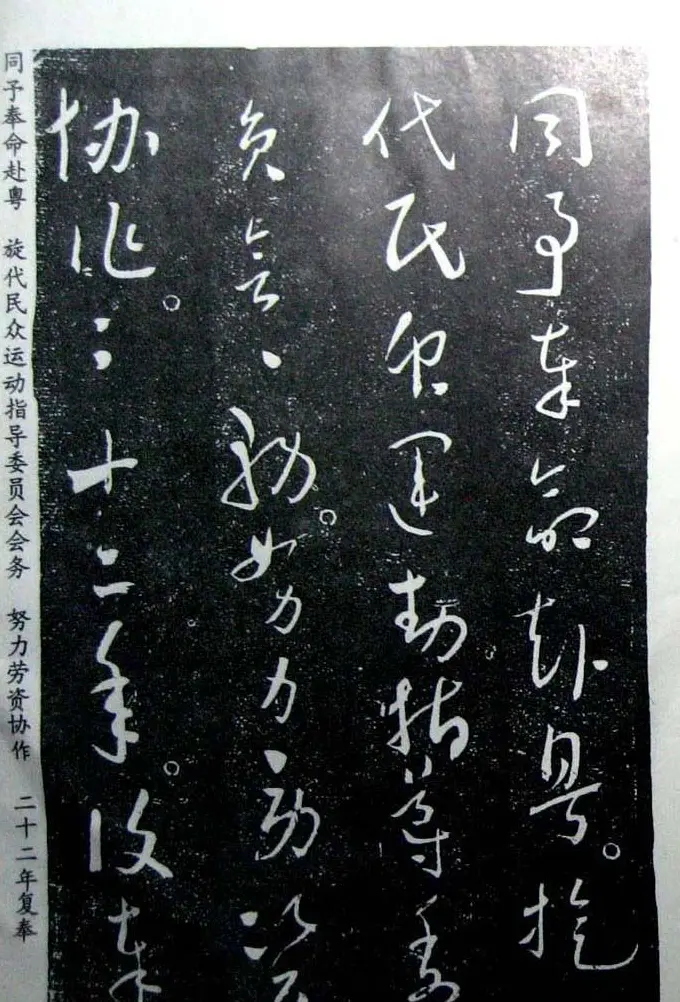 同予奉命赴粤。旋
代民众运动指导委
员会、务。努力劳资
协作。二十二年。复奉
同予奉命赴粤 旋代民众运动指导委员会会务 努力劳资协作 二十二年复奉